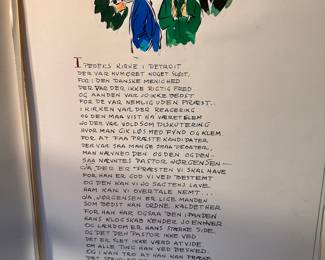 I PEDERS KIRKE I DETROIT
DER VAR HUMØRET NOGET SLØJT.
FOR I DEN DANSKE MENIGHED
DER VAR DER IKKE RIGTIG FRED
OG AANDEN VAR JO IKKE BEDST
FOR DE VAR NEMLIG UDEN PRÆST.
I KIRKEN VAR DER REAGERING
OG DEN MAA VIST HA VÆRET SLEM
JO DER VAR VOLDSOM DISKUTERING
HVOR MAN GIK LØS MED FYND OG KLEM.
FOR AT FAA PRÆSTEKANDIDATER
DER VAR SAA MANGE SMAA DEBATER,
MAN NÆVNED DEN OG DEN OG DEN
SAA NÆVNTES PASTOR JØRGENSEN
JA, DER ER PRÆSTEN VI SKAL HAVE
FOR HAN ER GOD VI VED BESTEMT
OG DEN KAN VI JO SAGTENS LAVE
HAM KAN VI OVERTALE NEMT...
JA, JØRGENSEN ER LIGE MANDEN
SOM BEDST KAN ORDNE KALDET HER
FOR HAN HAR OGSAA DEN I PANDEN
HANS KLOGSKAB KENDER JO ENHVER
OG LÆRDOM ER HANS STÆRKE SIDE
OG DET DEN PASTOR IKKE VED
DET ER SLET IKKE VÆRD AT VIDE
OM ALLE TING HAN VED BESKED
OG HAN KAN TRO AT HAN KAN PRÆKE